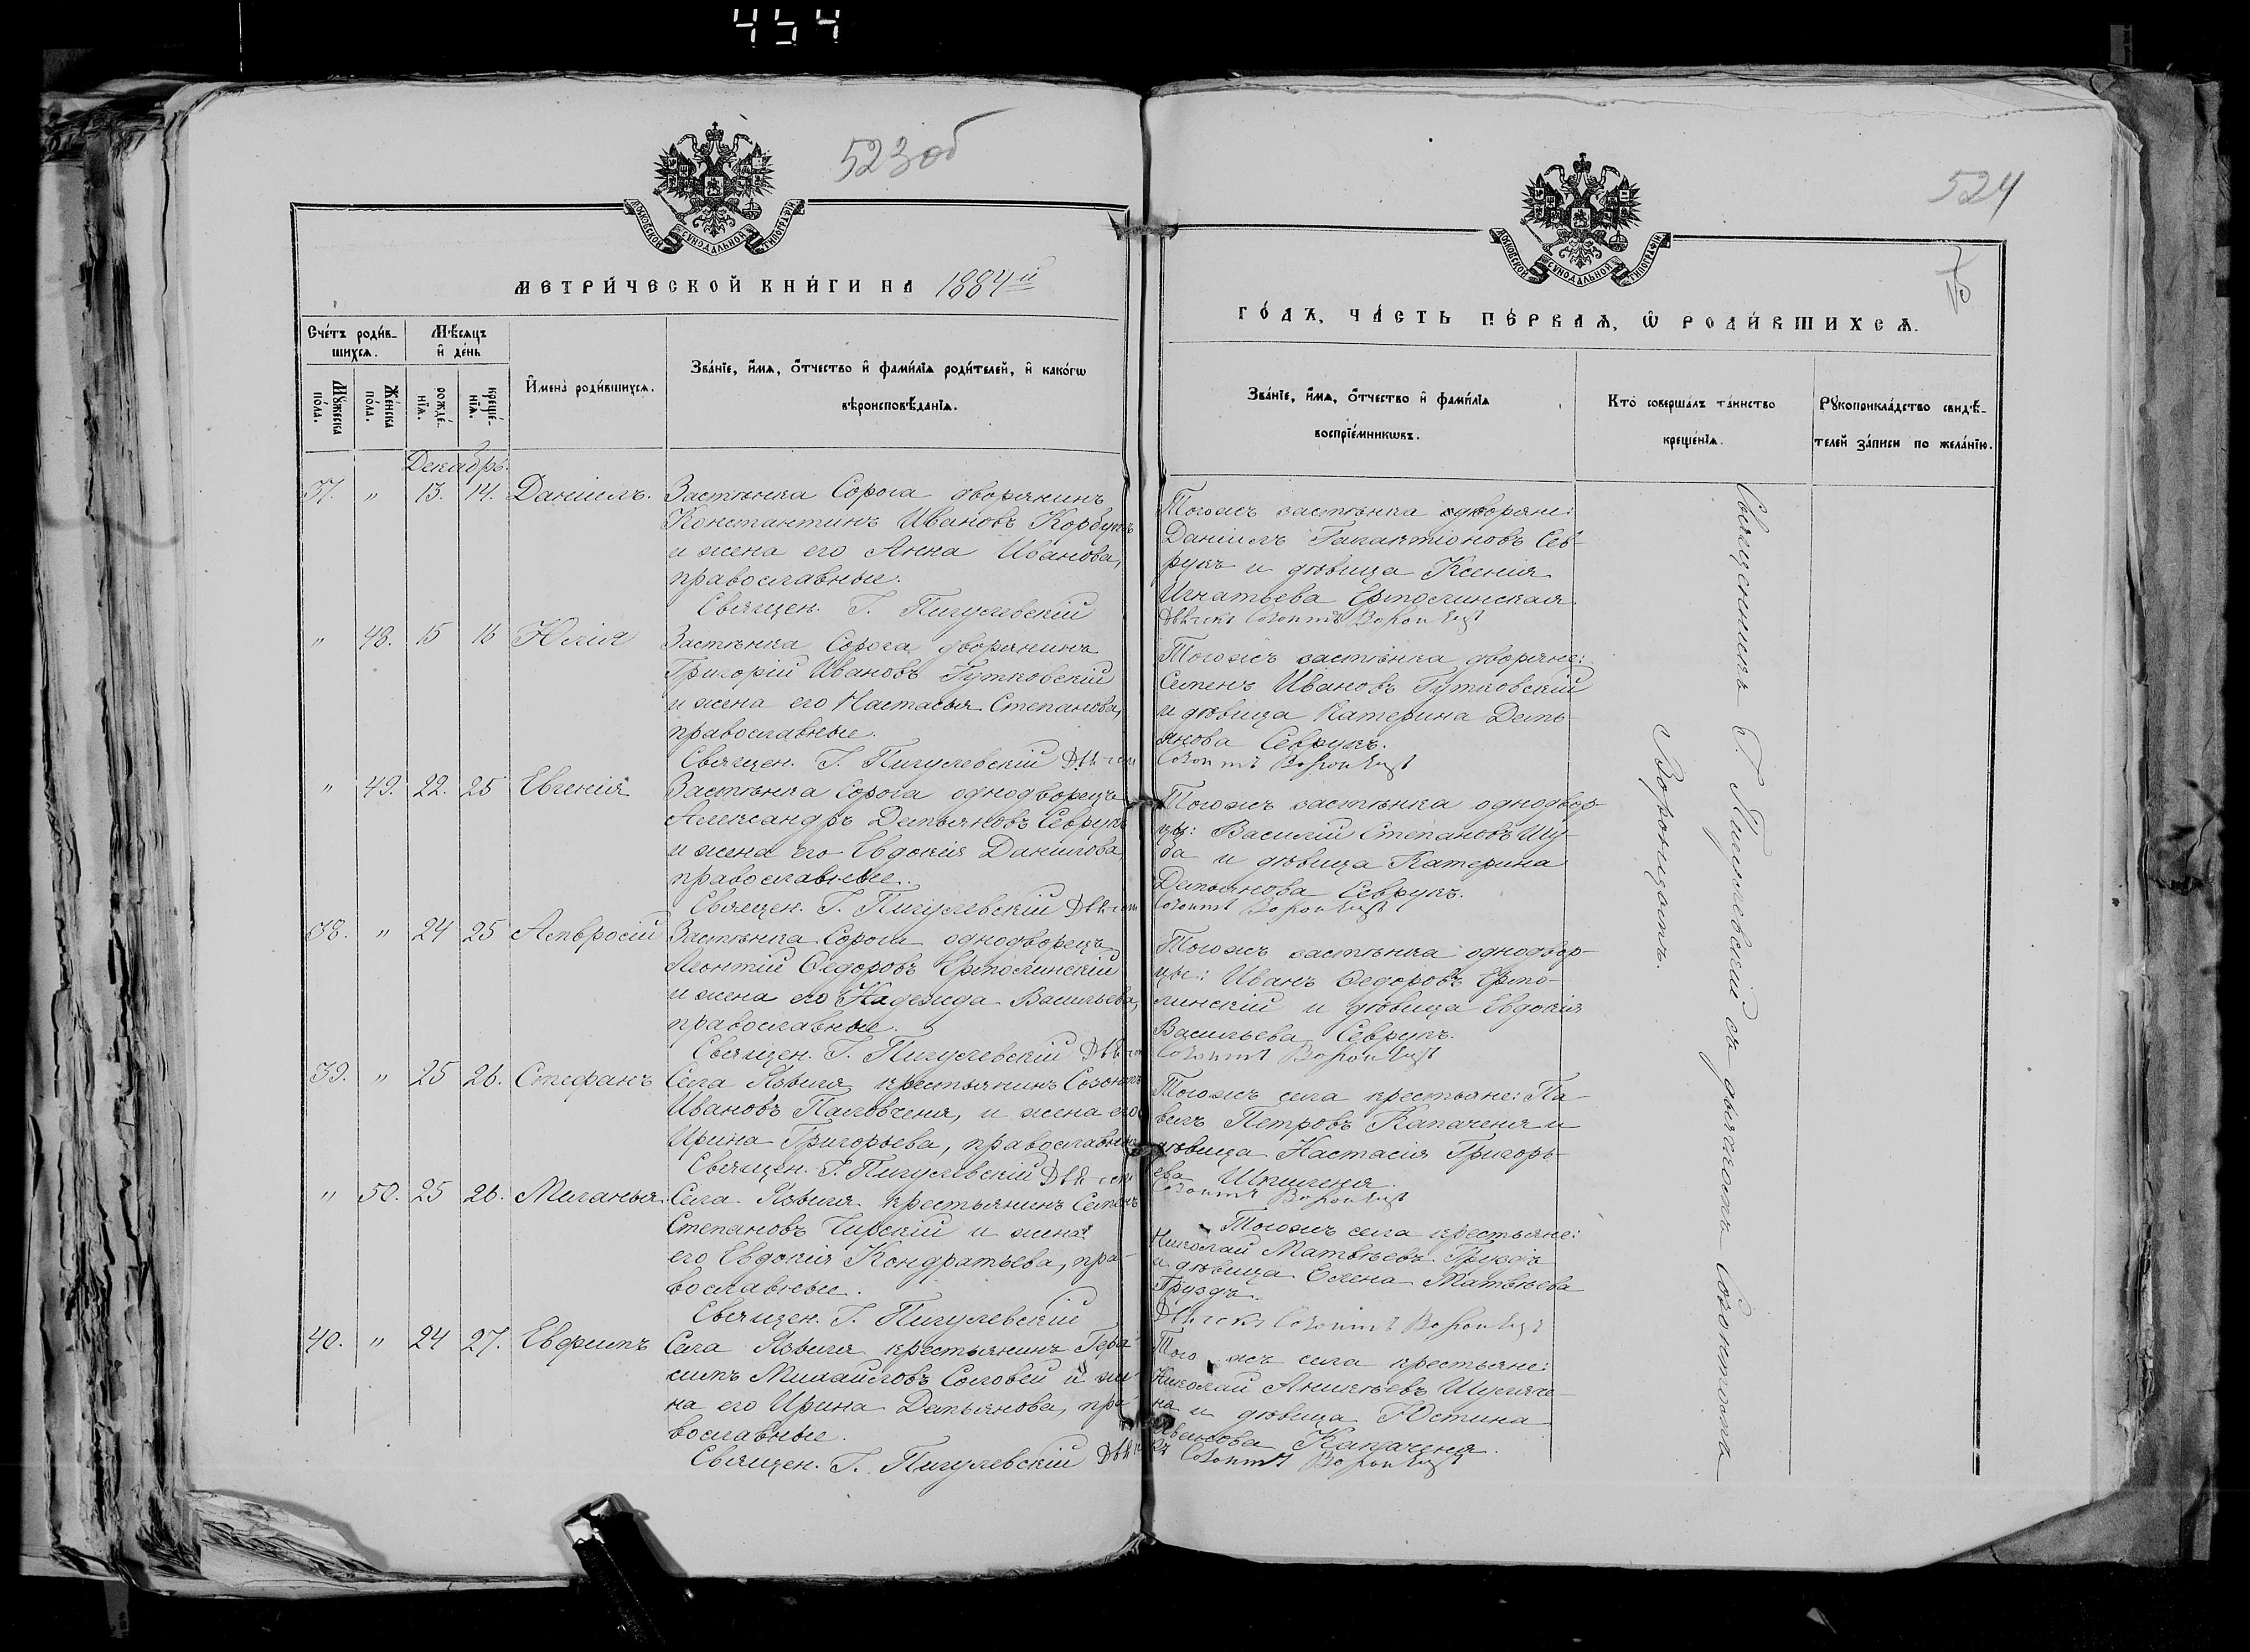 454
523об
МОСКОВСКОЙ СУНОДАЛЬНОЙ ТИПОГРАФІИ
МЕТРИ́ЧЕСКОЙ КНИ́ГИ НА 1884й
Сче́тъ роди́в-
шихсѧ.
Мѣ́сѧцъ
и҆ де́нь
Мꙋ́жеска по́ла.
Же́нска по́ла.
рожде́-
нїѧ.
креще́-
нїѧ.
И҆мена̀ роди́вшихсѧ.
Зва́нїе, и҆́мѧ, ѻ҆́тчество и҆ фами́лїѧ роди́телей, и҆ како́гѡ
вѣроисповѣ́данїѧ.
Декабрь.
37. " 13. 14. Даніилъ. Застѣнка Сорога дворянинъ
Константинъ Ивановъ Корбутъ
и жена его Анна Иванова,
православные.
Священ. Г. Пигулевскій
" 48. 15 16 Юлія Застѣнка Сорога дворянинъ
Григорій Ивановъ Гутковскій
и жена его Настасья Степанова,
православные.
Священ. Г. Пигулевскій Дьячекъ
" 49. 22. 25 Евгенія Застѣнка Сорога однодворецъ
Александръ Демьяновъ Севрукъ
и жена его Евдокія Данилова,
православные.
Священ. Г. Пигулевскій Дьячекъ
38. " 24 25 Амвросій Застѣнка Сорога однодворецъ
Леонтій Ѳедоровъ Ермолинскій
и жена его Надежда Васильева,
православные.
Священ. Г. Пигулевскій Дьячекъ
39. " 25 26. Стефанъ Села Язвиля крестьянинъ Созонтъ
Ивановъ Паловченя, и жена его
Ирина Григорьева, православные
Священ. Г. Пигулевскій Дьячекъ
" 50. 25 26. Меланья. Села Язвиля крестьянинъ Семенъ
Степановъ Чирскій и жена
его Евдокія Кондратьева, пра-
вославные.
Священ. Г. Пигулевскій
40. " 24 27. Евфимъ Села Язвиля крестьянинъ Гера-
симъ Михайловъ Соловей и же-
на его Ирина Демьянова, пра-
вославные.
Священ. Г. Пигулевскій Дьячекъ
524
МОСКОВСКОЙ СУНОДАЛЬНОЙ ТИПОГРАФІИ
ГО́ДЪ, ЧА́СТЬ ПЕ́РВАѦ, Ѡ҆ РОДИ́ВШИХСѦ.
Зва́нїе, и҆́мѧ, ѻ҆́тчество и҆ фами́лїѧ
воспрїе́мникѡвъ.
Кто̀ соверша́лъ та́инство
креще́нїѧ.
Рꙋкоприкла́дство свидѣ́-
телей за́писи по жела́нїю.
Тогожъ застѣнка дворяне:
Даніилъ Галактіоновъ Сев-
рукъ и дѣвица Ксенія
Игнатьева Ермолинская
Дьячекъ Созонтъ Воронецъ
Тогожъ застѣнка дворяне:
Семенъ Ивановъ Гутковскій
и дѣвица Катерина Демь-
янова Севрукъ.
Созонтъ Воронецъ
Тогожъ застѣнка однодвор-
цы: Василій Степановъ Шу-
ба и дѣвица Катерина
Демьянова Севрукъ.
Созонтъ Воронецъ
Тогожъ застѣнка однодвор-
цы: Иванъ Ѳедоровъ Ермо-
линскій и дѣвица Евдокія
Васильева Севрукъ.
Созонтъ Воронецъ
Тогожъ села крестьяне: Па-
велъ Петровъ Капаченя и
дѣвица Настасія Григорь-
ева
Созонтъ Воронецъ
Тогожъ села крестьяне:
Николай Матвѣевъ Груздъ
и дѣвица Елена Матвѣева
Груздъ.
Дьячекъ Созонтъ Воронецъ
Того жъ села крестьяне:
Николай Аникѣевъ
и дѣвица Юстина
Иванова Капаченя.
Созонтъ Воронецъ
Священникъ Г. Пигулевскій съ дьячкомъ Созонтомъ
Воронцомъ.